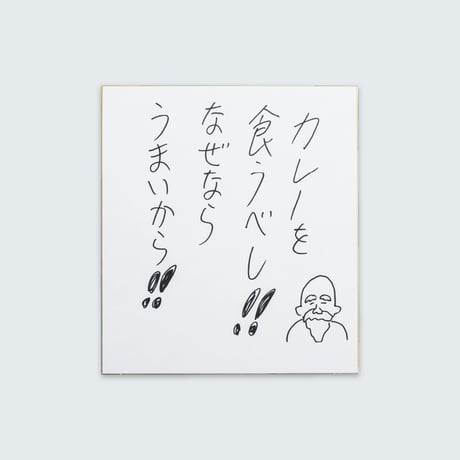 カレーを
食うべし!!
なぜなら
うまいから!!